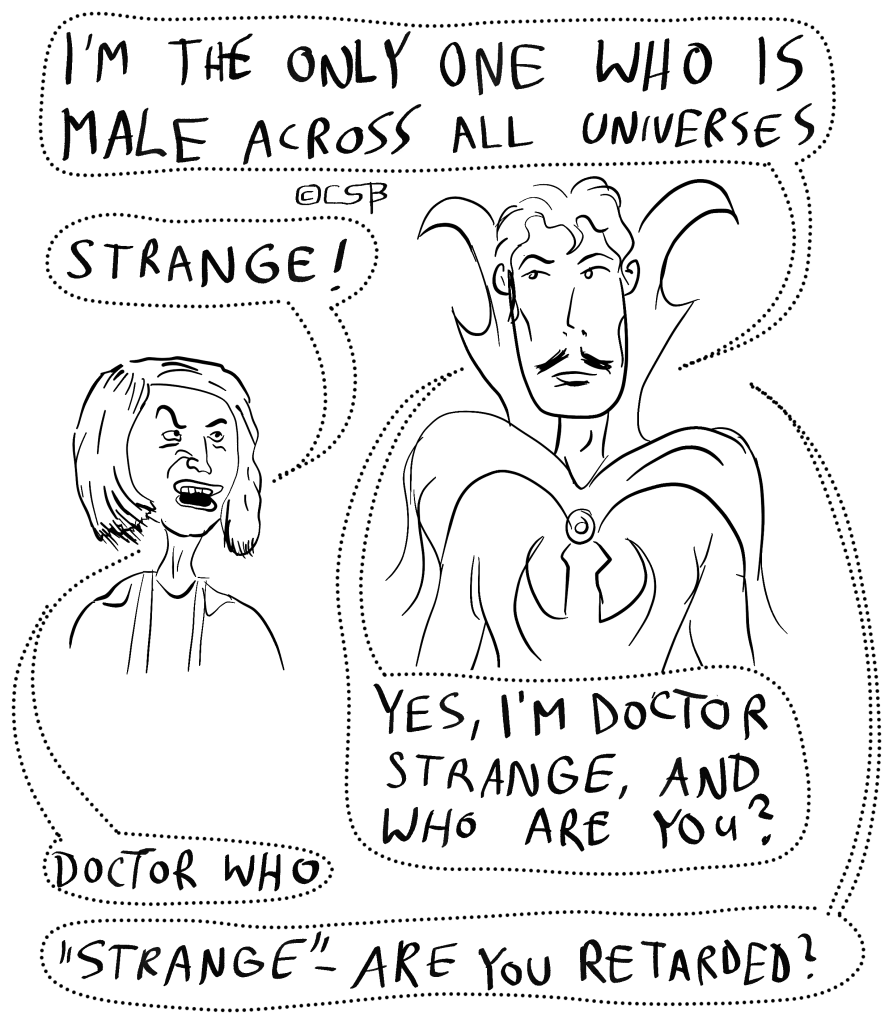 I'M THE ONLY ONE WHO IS
MALE ACROSS ALL UNIVERSES
©CSB
STRANGE!
YES, I'M DOCTOR
STRANGE, AND
WHO ARE YOU?
DOCTOR WHO
"STRANGE"- ARE YOU RETARDED?